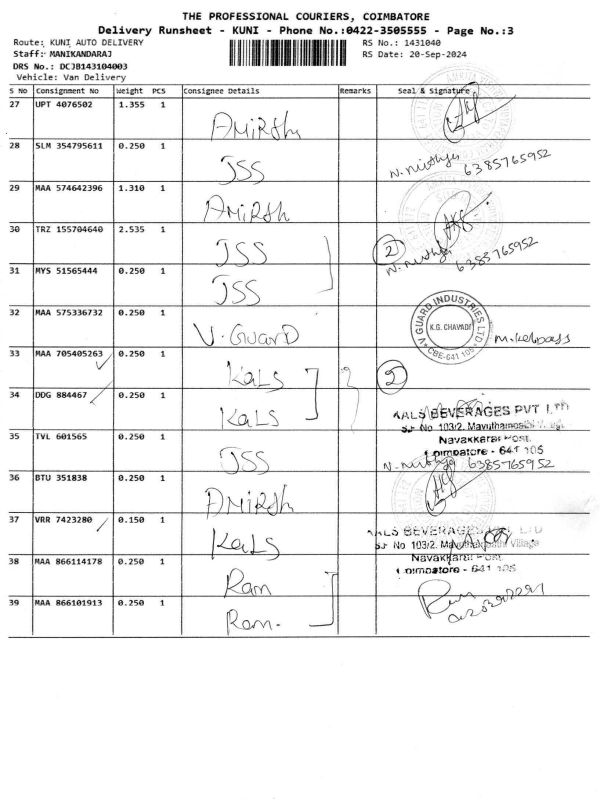 THE PROFESSIONAL COURIERS, COIMBATORE
Delivery Runsheet - KUNI - Phone No.:0422-3505555 - Page No.:3
Route: KUNI AUTO DELIVERY RS No.: 1431040
Staff: MANIKANDARAJ RS Date: 20-Sep-2024
DRS No.: DCJB143104003
Vehicle: Van Delivery
S No Consignment No Weight PCS Consignee Details Remarks Seal & Signature
27 UPT 4076502 1.355 1 AMiRSh
28 SLM 354795611 0.250 1 JSS N. Nithya 6385765952
29 MAA 574642396 1.310 1 AMiRSh
30 TRZ 155704640 2.535 1 JSS 2 N. Nithya 6385765952
31 MYS 51565444 0.250 1 JSS
32 MAA 575336732 0.250 1 V. GUARD V GUARD INDUSTRIES LTD K.G. CHAVADI CBE-641 105
33 MAA 705405263 0.250 1 KALS 2
34 DDG 884467 0.250 1 KALS KALS BEVERAGES PVT LTD
S.F No 103/2, Mavuthampathi Village
35 TVL 601565 0.250 1 JSS Navakkarai Post,
Coimbatore - 641 105
N. Nithya 6385765952
36 BTU 351838 0.250 1 AMiRSh
37 VRR 7423280 0.150 1 KALS KALS BEVERAGES PVT LTD
S.F No 103/2, Mavuthampathi Village
38 MAA 866114178 0.250 1 Ram Navakkarai Post
Coimbatore - 641 105
39 MAA 866101913 0.250 1 Ram.